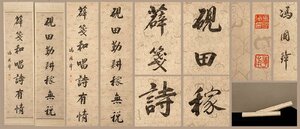 硯田勤耕稼無税
薛箋和唱詩有情
馮國璋
硯田勤耕稼無税
薛箋和唱詩有情
馮國璋
硯田
稼
薛箋
詩
馮國璋